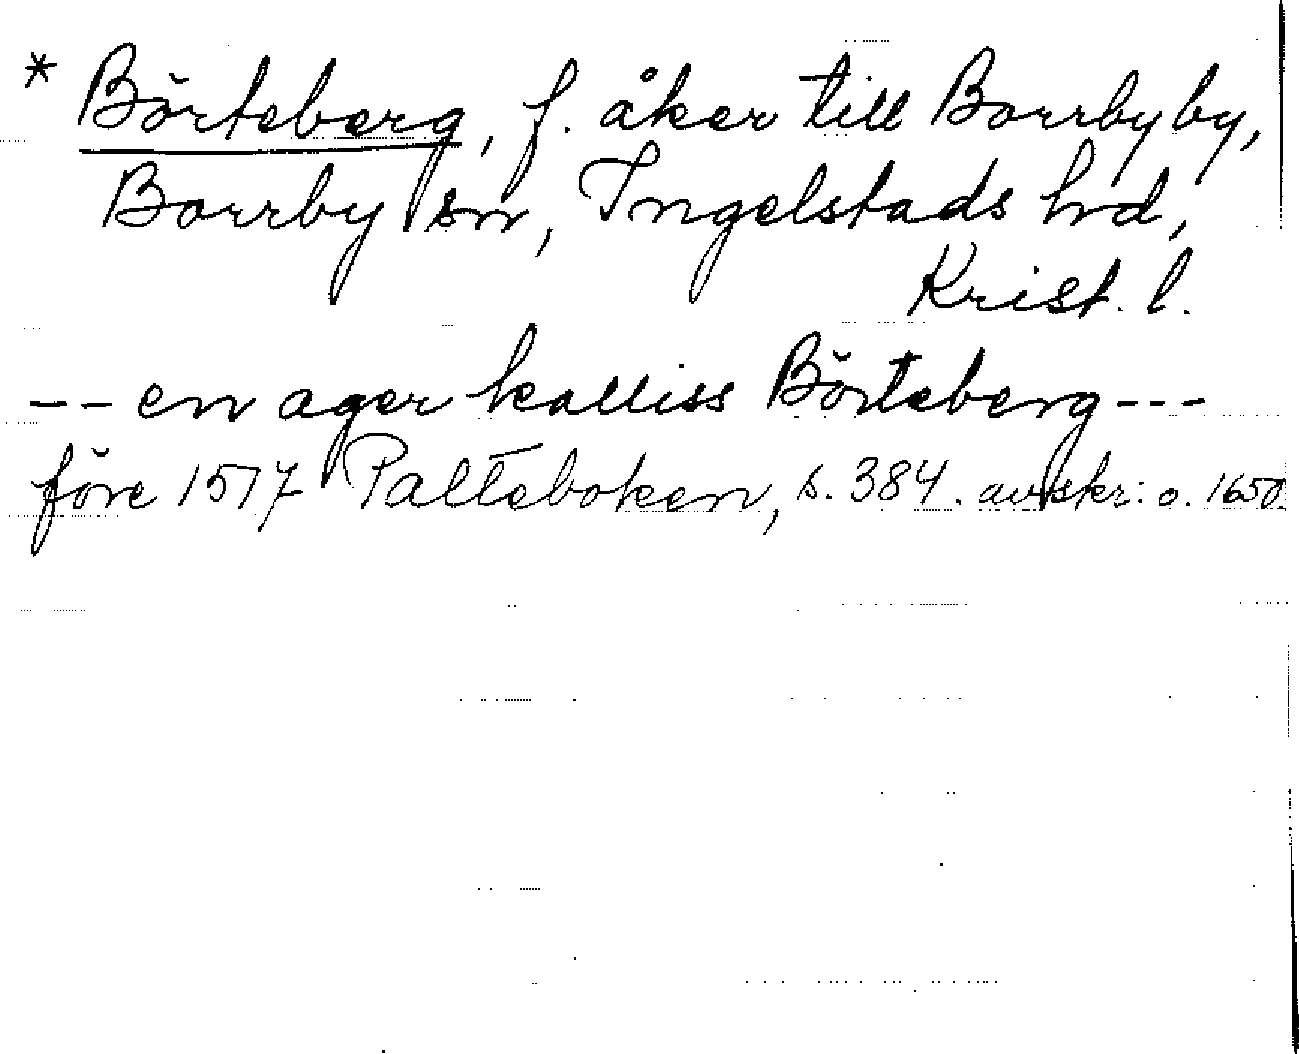 * Börteberg, f. åker till Borrby by,
Borrby sn, Ingelstads hrd,
Krist. l.
-- en ager kalliss Börteberg ---
före 1517 Palteboken, s. 384. avskr: o. 1650.